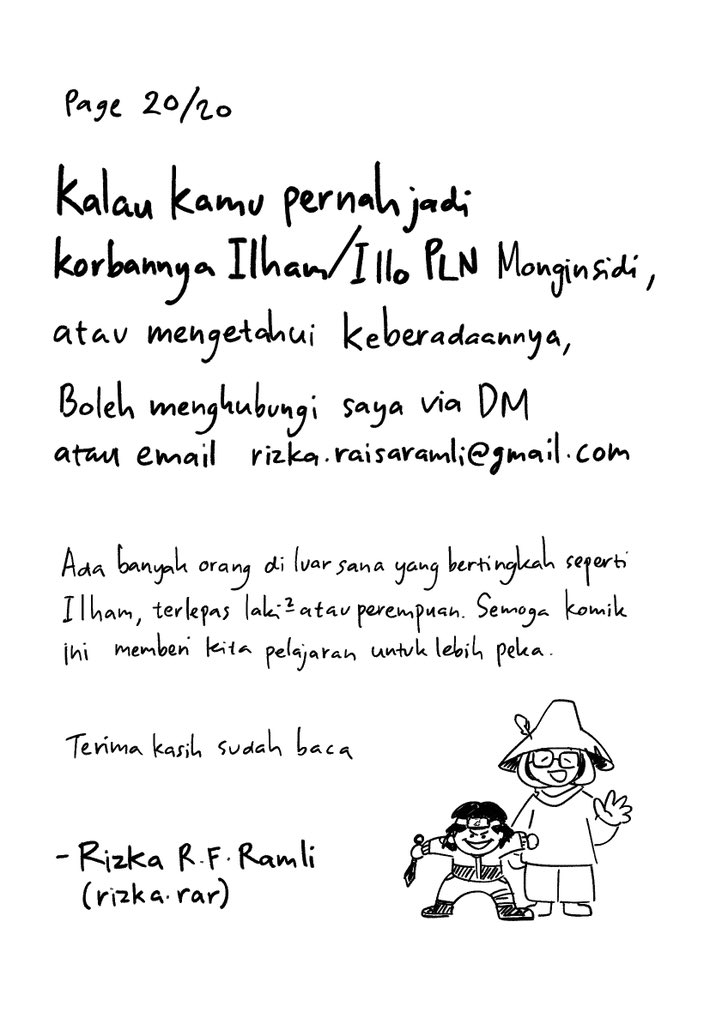 Page 20/20
Kalau kamu pernah jadi
korbannya Ilham/Illo PLN Monginsidi,
atau mengetahui keberadaannya,
Boleh menghubungi saya via DM
atau email rizka.raisaramli@gmail.com
Ada banyak orang di luar sana yang bertingkah seperti
Ilham, terlepas laki² atau perempuan. Semoga komik
ini memberi kita pelajaran untuk lebih peka.
Terima kasih sudah baca
- Rizka R.F. Ramli
(rizka.rar)